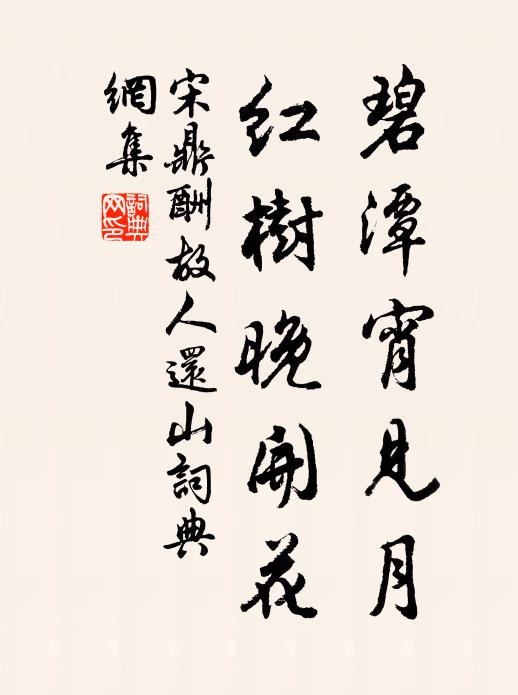 碧潭宵見月
紅樹晚開花
宋鼎酬故人還山詞典
網集
詞典
网印